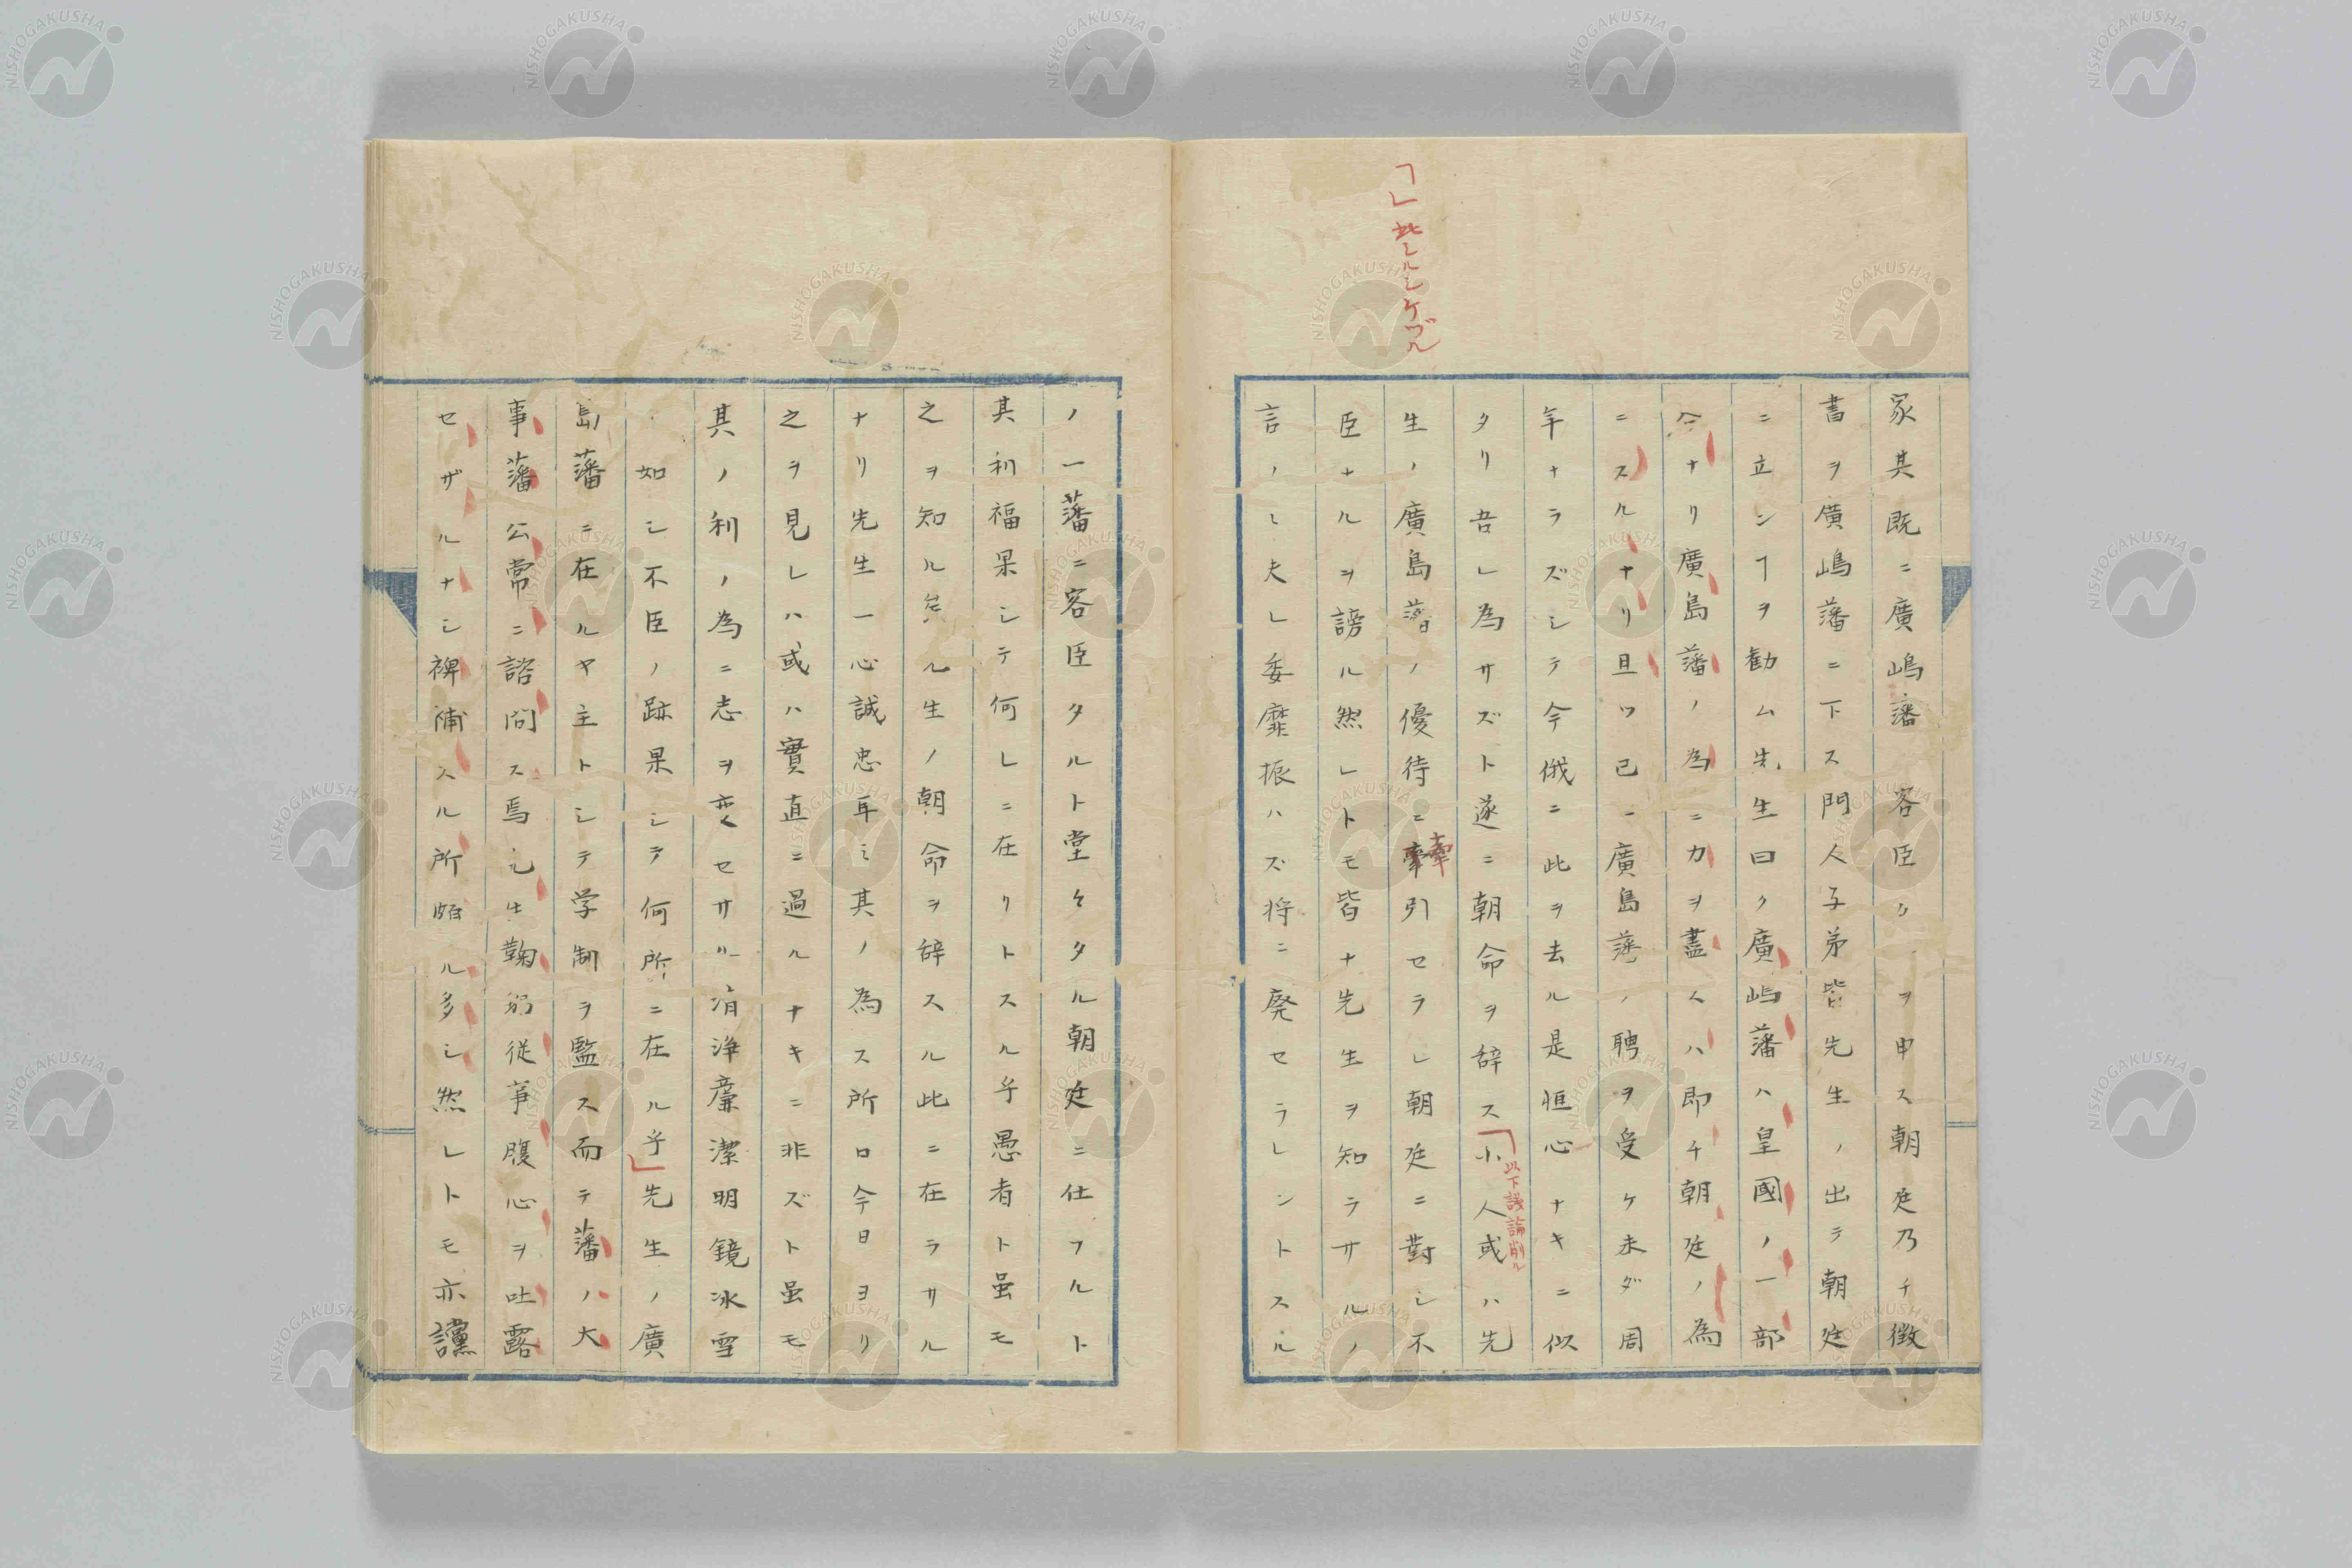 「」此シルシケヅル
家其既ニ廣嶋藩 客臣 ヲ申ス朝廷乃チ徴
書ヲ廣嶋藩ニ下ス門人子弟皆先生ノ出テ朝廷
ニ立ンヿヲ勧ム先生曰ク廣嶋藩ハ皇國ノ一部
今ナリ廣島藩ノ為ニ力ヲ盡スハ即チ朝廷ノ為
ニスルナリ且ツ已ニ廣島藩ノ聘ヲ受ケ未ダ周
年ナラズシテ今俄ニ此ヲ去ル是恒心ナキニ似
タリ吾レ為サズト遂ニ朝命ヲ辞ス「小人或ハ先
以下議論削ル
生ノ廣島藩ノ優待ニ牽引セラレ朝廷ニ對シ不
牽
臣ナルヲ謗ル然レトモ皆ナ先生ヲ知ラサルノ
言ノミ夫レ委靡振ハズ将ニ廃セラレントスル
ノ一藩ニ客臣タルト堂々タル朝廷ニ仕フルト
其利福果シテ何レニ在リトスル乎愚者ト虽モ
之ヲ知ル矣先生ノ朝命ヲ辞スル此ニ在ラサル
ナリ先生一心誠忠耳ミ其ノ為ス所ロ今日ヨリ
之ヲ見レハ或ハ實直ニ過ルナキニ非ズト虽モ
其ノ利ノ為ニ志ヲ変セサル 清浄廉潔明鏡冰雪
如シ不臣ノ跡果シテ何所ニ在ル乎」先生ノ廣
島藩ニ在ルヤ主トシテ学制ヲ監ス而テ藩ノ大
事藩公常ニ諮問ス焉先生鞠躬従事腹心ヲ吐露
セザルナシ裨補スル所頗ル多シ然レトモ亦讜
NISHOGAKUSHA